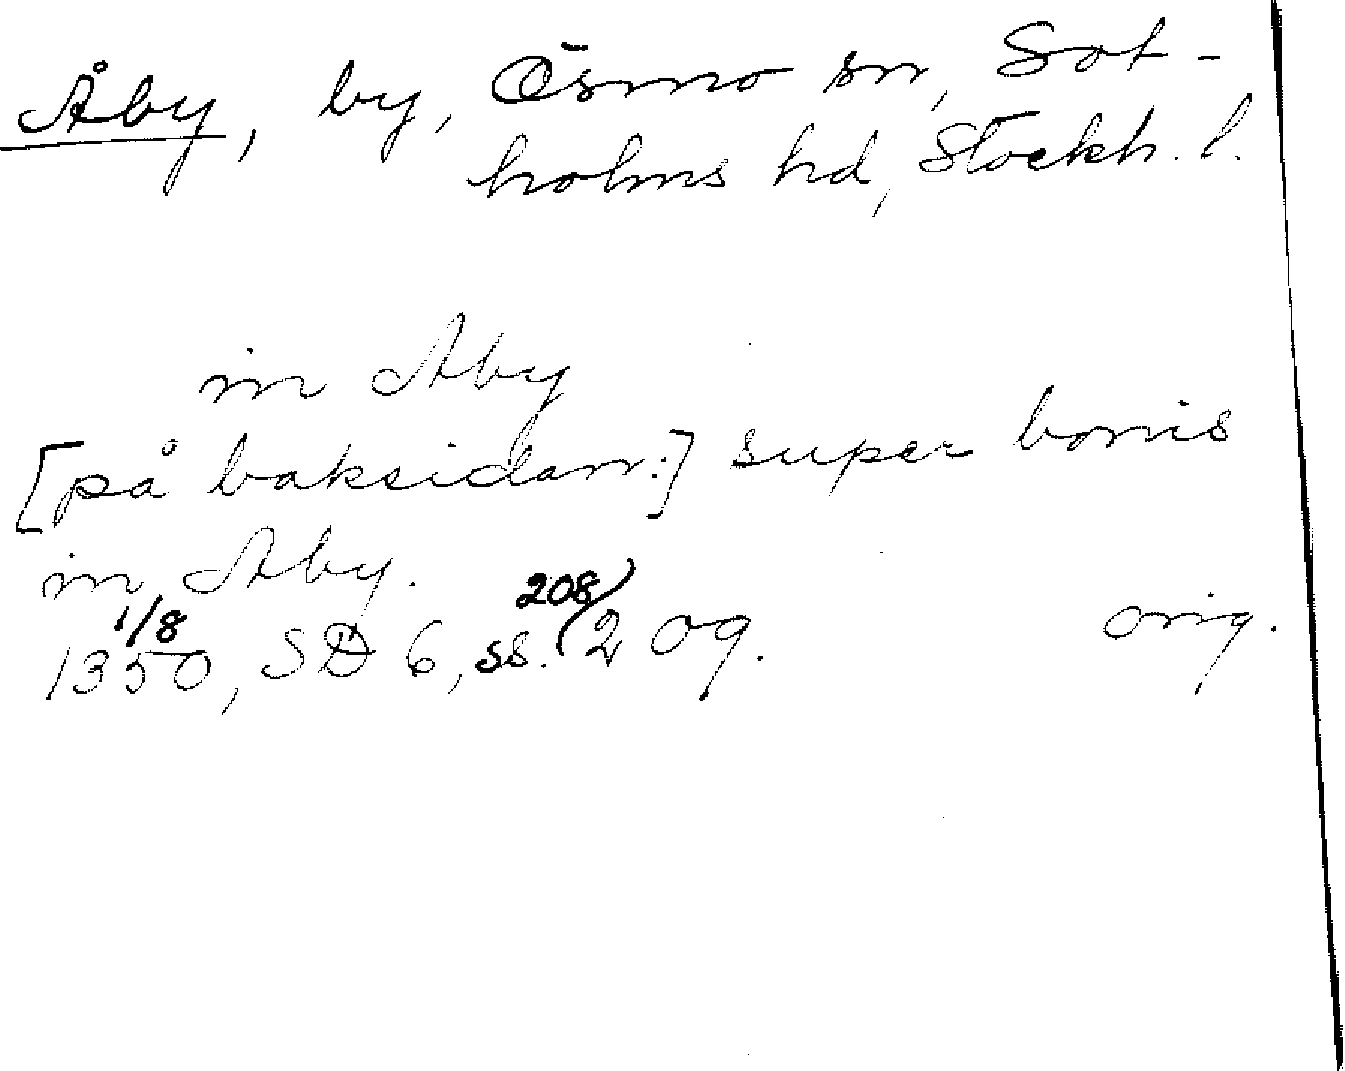 Åby, by, Ösmo sn, Sot-
holms hd, Stockh. l.
in Aby
[på baksidan:] super bonis
in Aby.
1/8 208
1350, SD 6, ss. 209. orig.